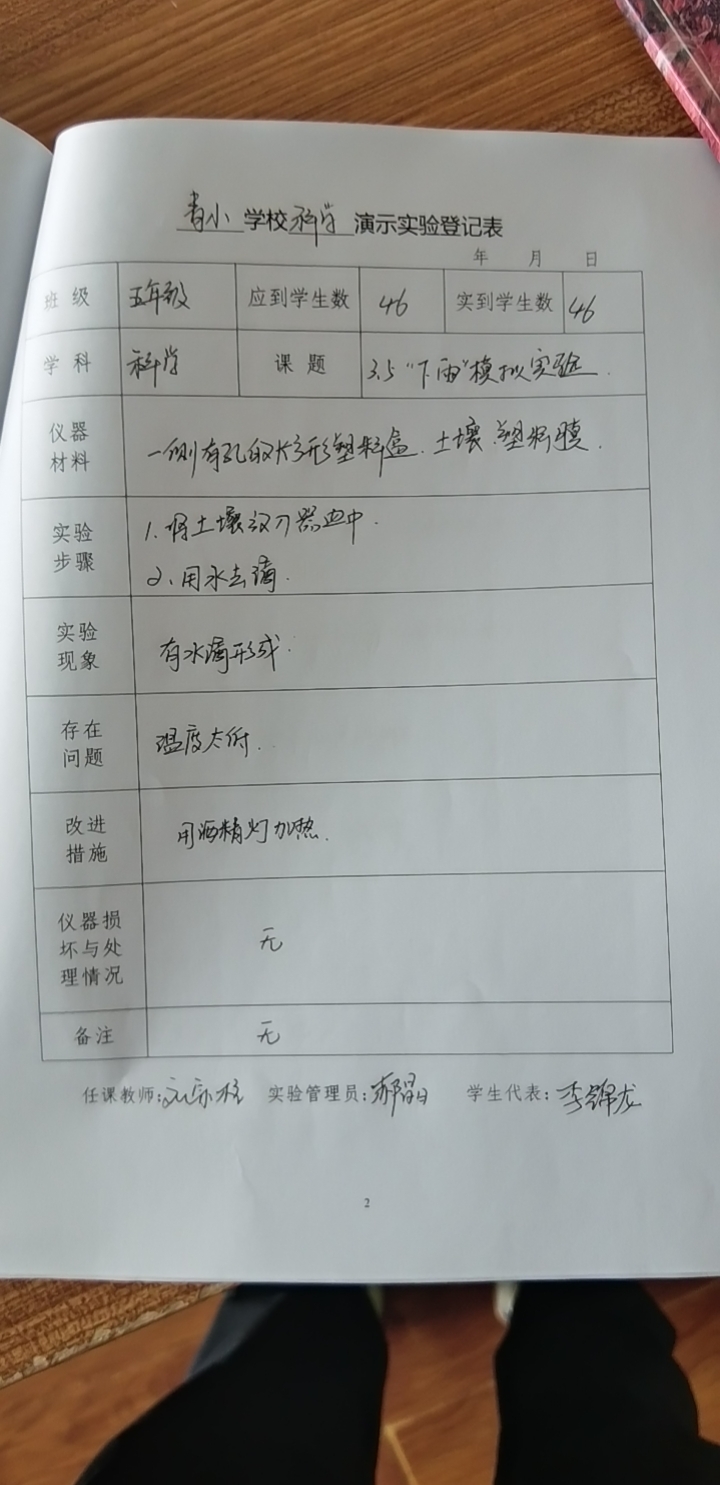 青小 学校 科学 演示实验登记表
年 月 日
班级 五年级 应到学生数 46 实到学生数 46
学科 科学 课题 3.5 "下雨"模拟实验.
仪器
材料
一侧有孔的长方形塑料盒.土壤.塑料膜.
实验
步骤
1.将土壤放入器皿中.
2、用水去滴.
实验
现象
有水滴形成.
存在
问题
温度太低.
改进
措施
用酒精灯加热.
仪器损
坏与处
理情况
无
备注 无
任课教师: 实验管理员: 学生代表:李锦龙
2